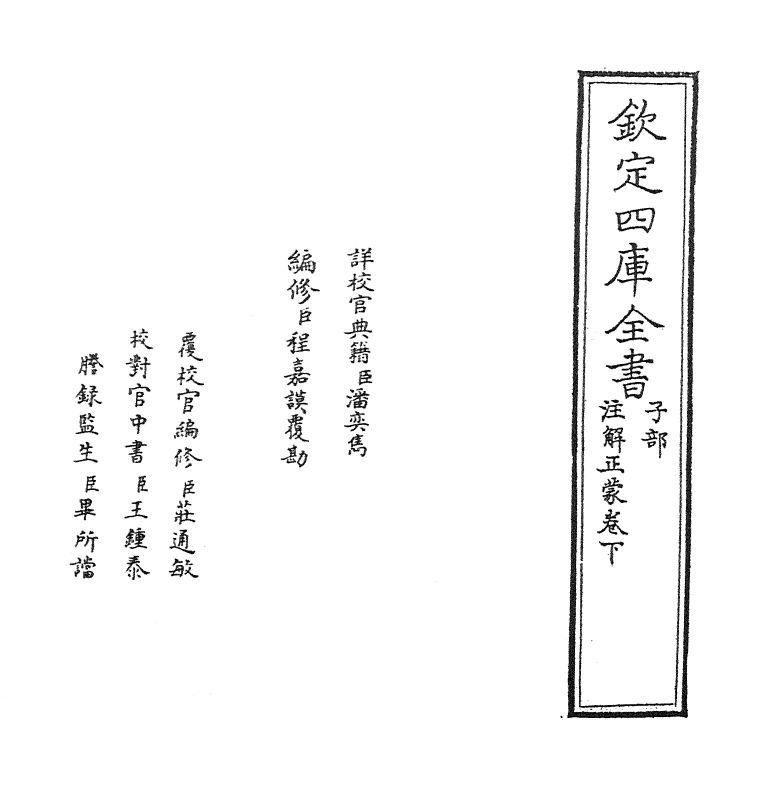 欽定四庫全書
子部
注解正蒙卷下
詳校官典籍臣潘奕雋
編修臣程嘉謨覆勘
覆校官編修臣莊通敏
校對官中書臣王鍾泰
謄録監生臣畢所讜